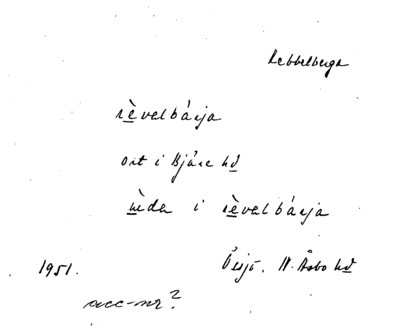 Rebbelberga
rèvelbárja
ort i Bjäre hd
nèda i rèvelbárja
1951. Össjö. N. Åsbo hd
acc-nr?